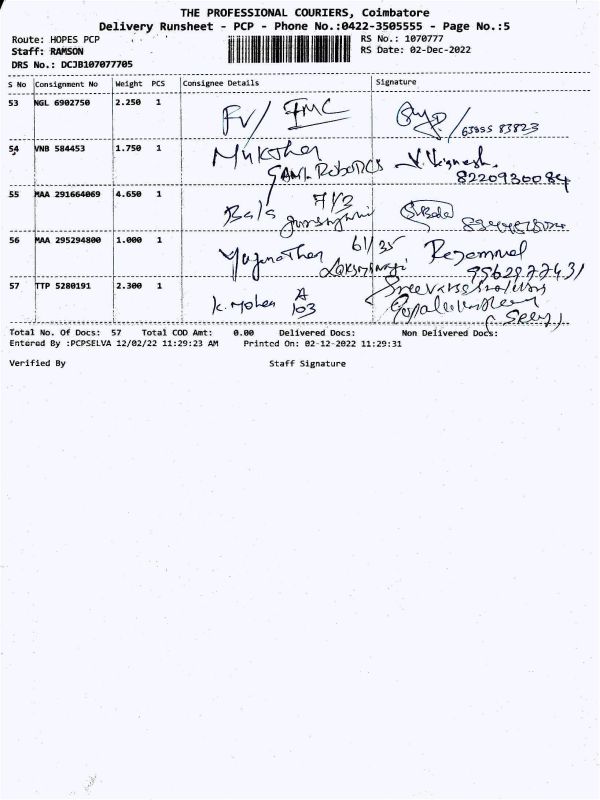 THE PROFESSIONAL COURIERS, Coimbatore
Delivery Runsheet - PCP - Phone No.:0422-3505555 - Page No.:5
Route: HOPES PCP RS No.: 1070777
Staff: RAMSON RS Date: 02-Dec-2022
DRS No.: DCJB107077705
S No Consignment No Weight PCS Consignee Details Signature
53 NGL 6902750 2.250 1 FV/ IMC
63855 83823
54 VNB 584453 1.750 1 V. Vignesh.
8220930084
55 MAA 291664069 4.650 1 Bala 7/3 S.Bala
56 MAA 295294800 1.000 1 61/35
57 TTP 5280191 2.300 1 K. Mohan A 103
Total No. Of Docs: 57 Total COD Amt: 0.00 Delivered Docs: Non Delivered Docs:
Entered By :PCPSELVA 12/02/22 11:29:23 AM Printed On: 02-12-2022 11:29:31
Verified By Staff Signature